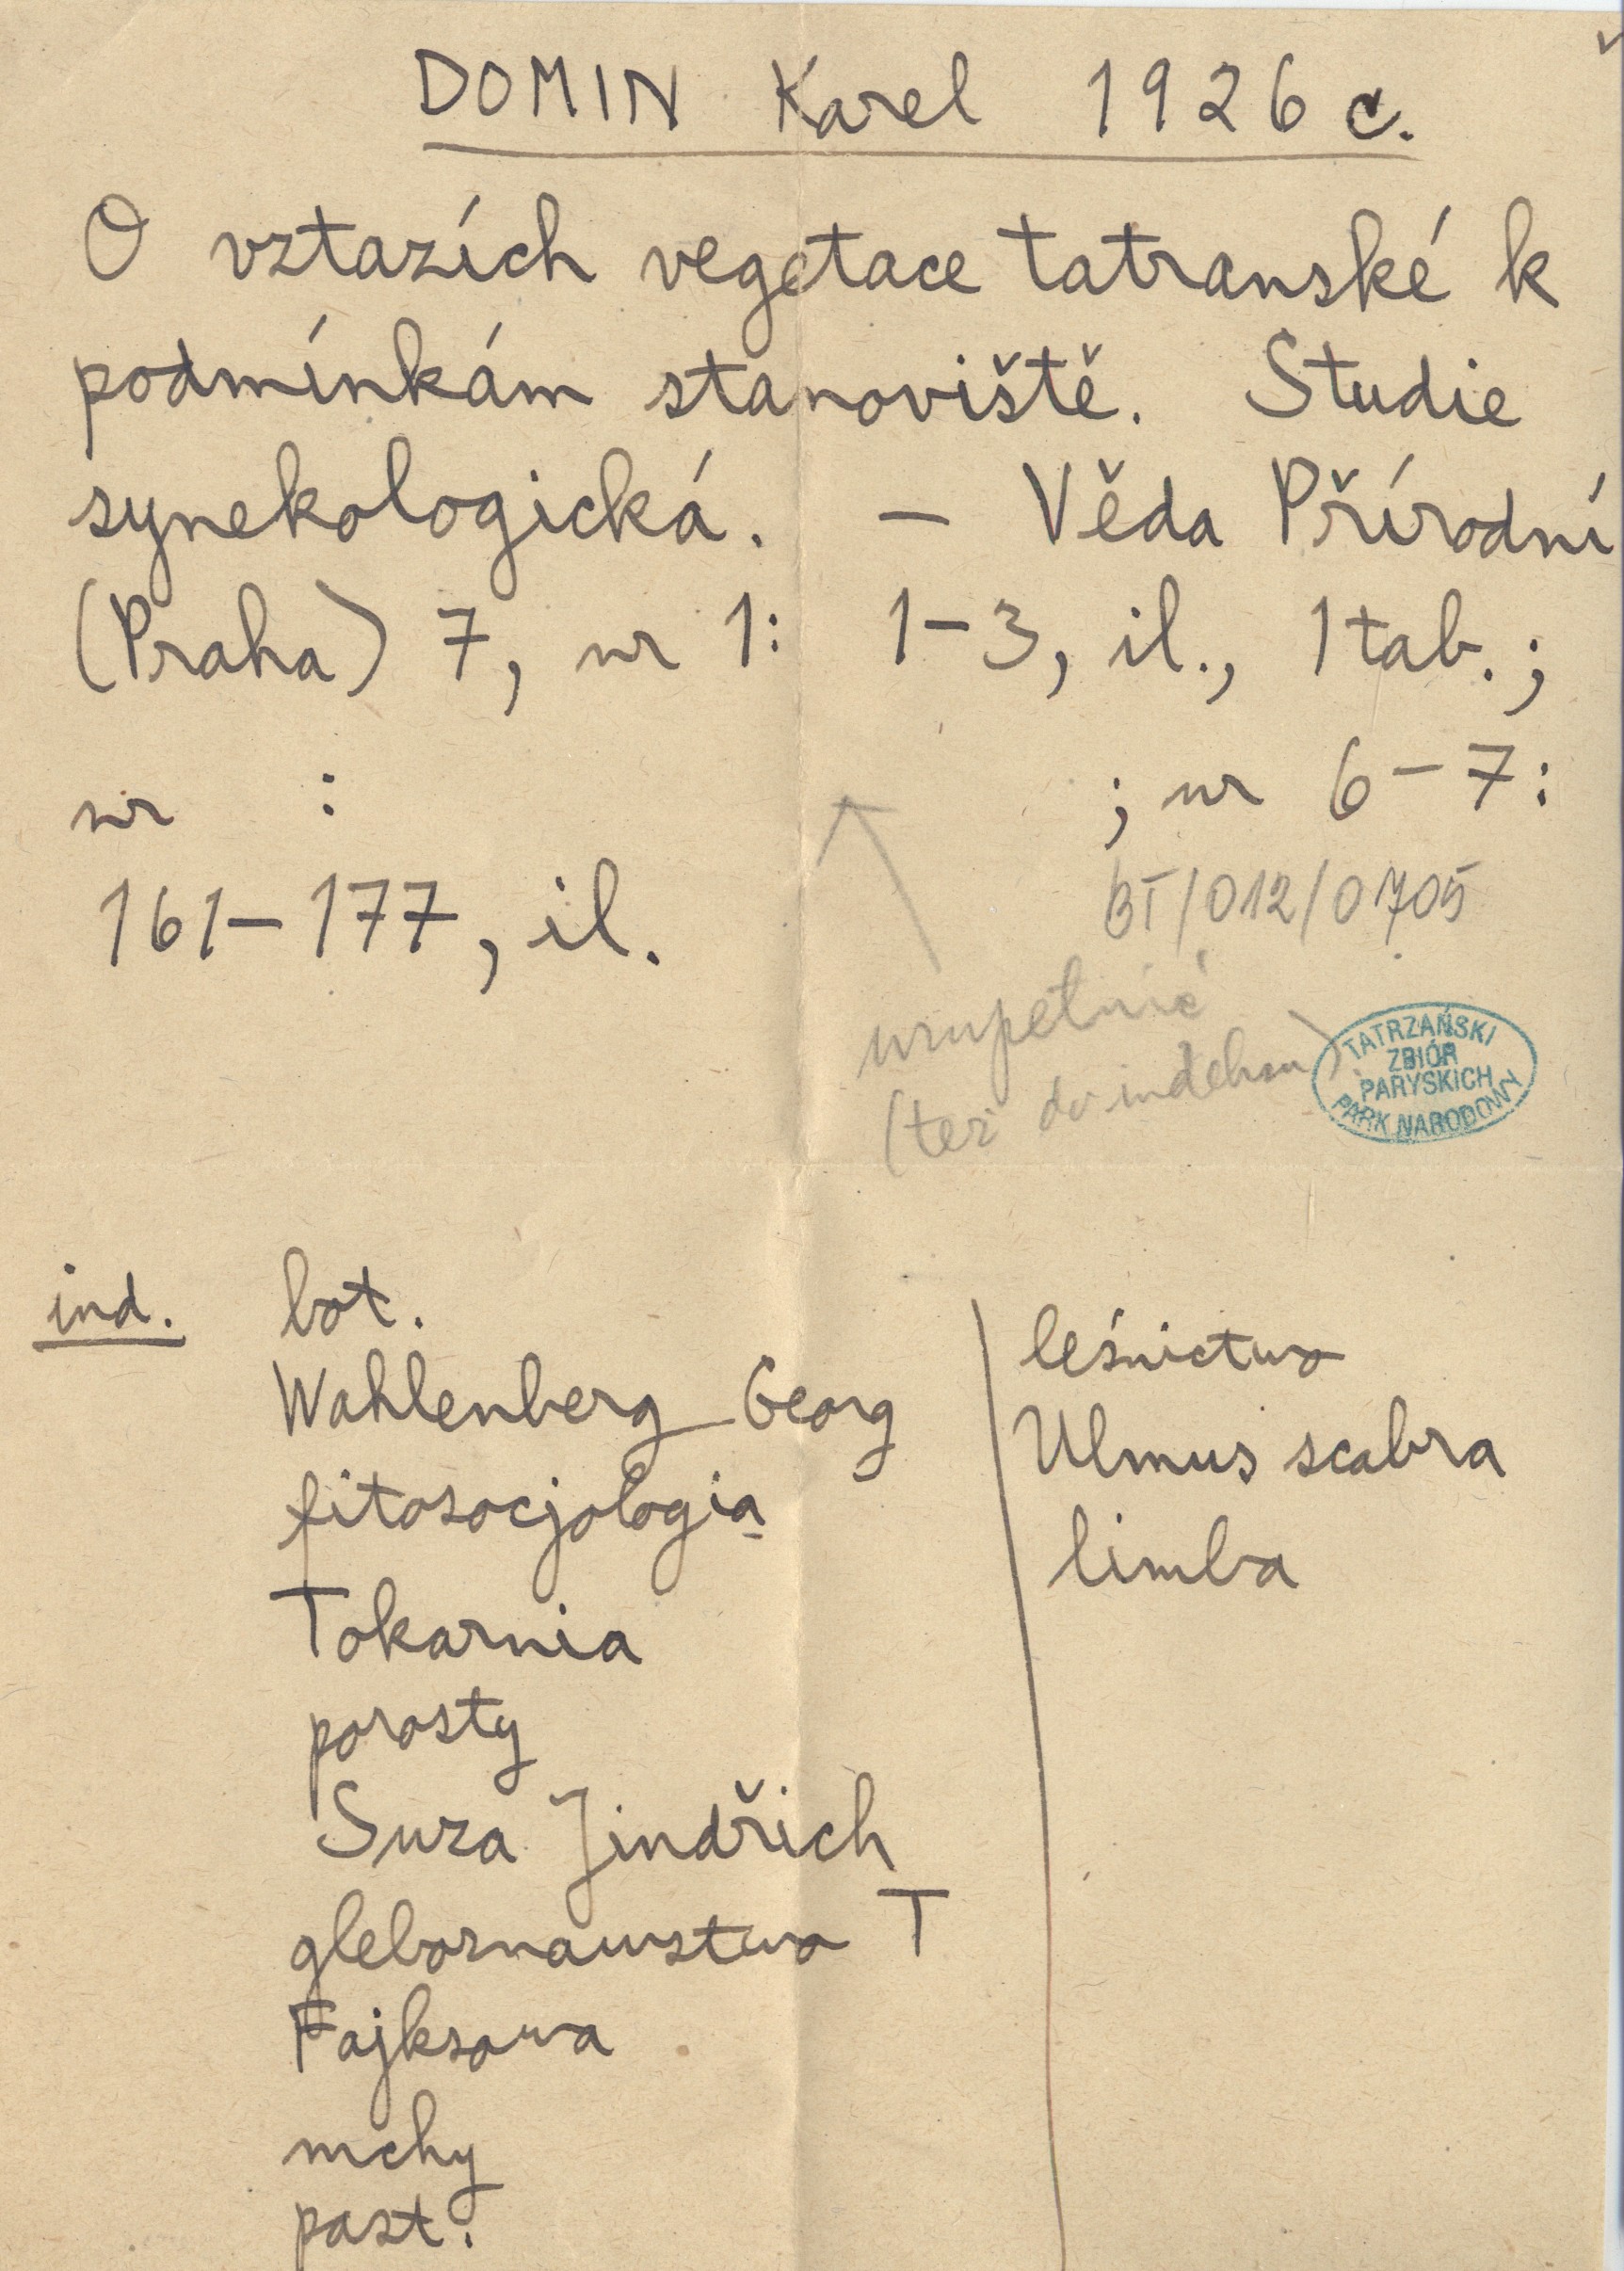 DOMIN Karel 1926 c.
O vztazích vegetace tatranské k
podmínkám stanoviště. Studie
synekologická. – Věda Přírodní
(Praha) 7, nr 1: 1–3, il., 1 tab.;
nr : ; nr 6–7:
161–177, il.
BT/012/0705
uzupełnić
(też do indeksu)
TATRZAŃSKI
ZBIÓR
PARYSKICH
PARK NARODOWY
ind. bot.
Wahlenberg Georg
fitosocjologia
Tokarnia
porosty
Suza Jindřich
gleboznawstwo T
Fajksowa
mchy
past.
leśnictwo
Ulmus scabra
limba